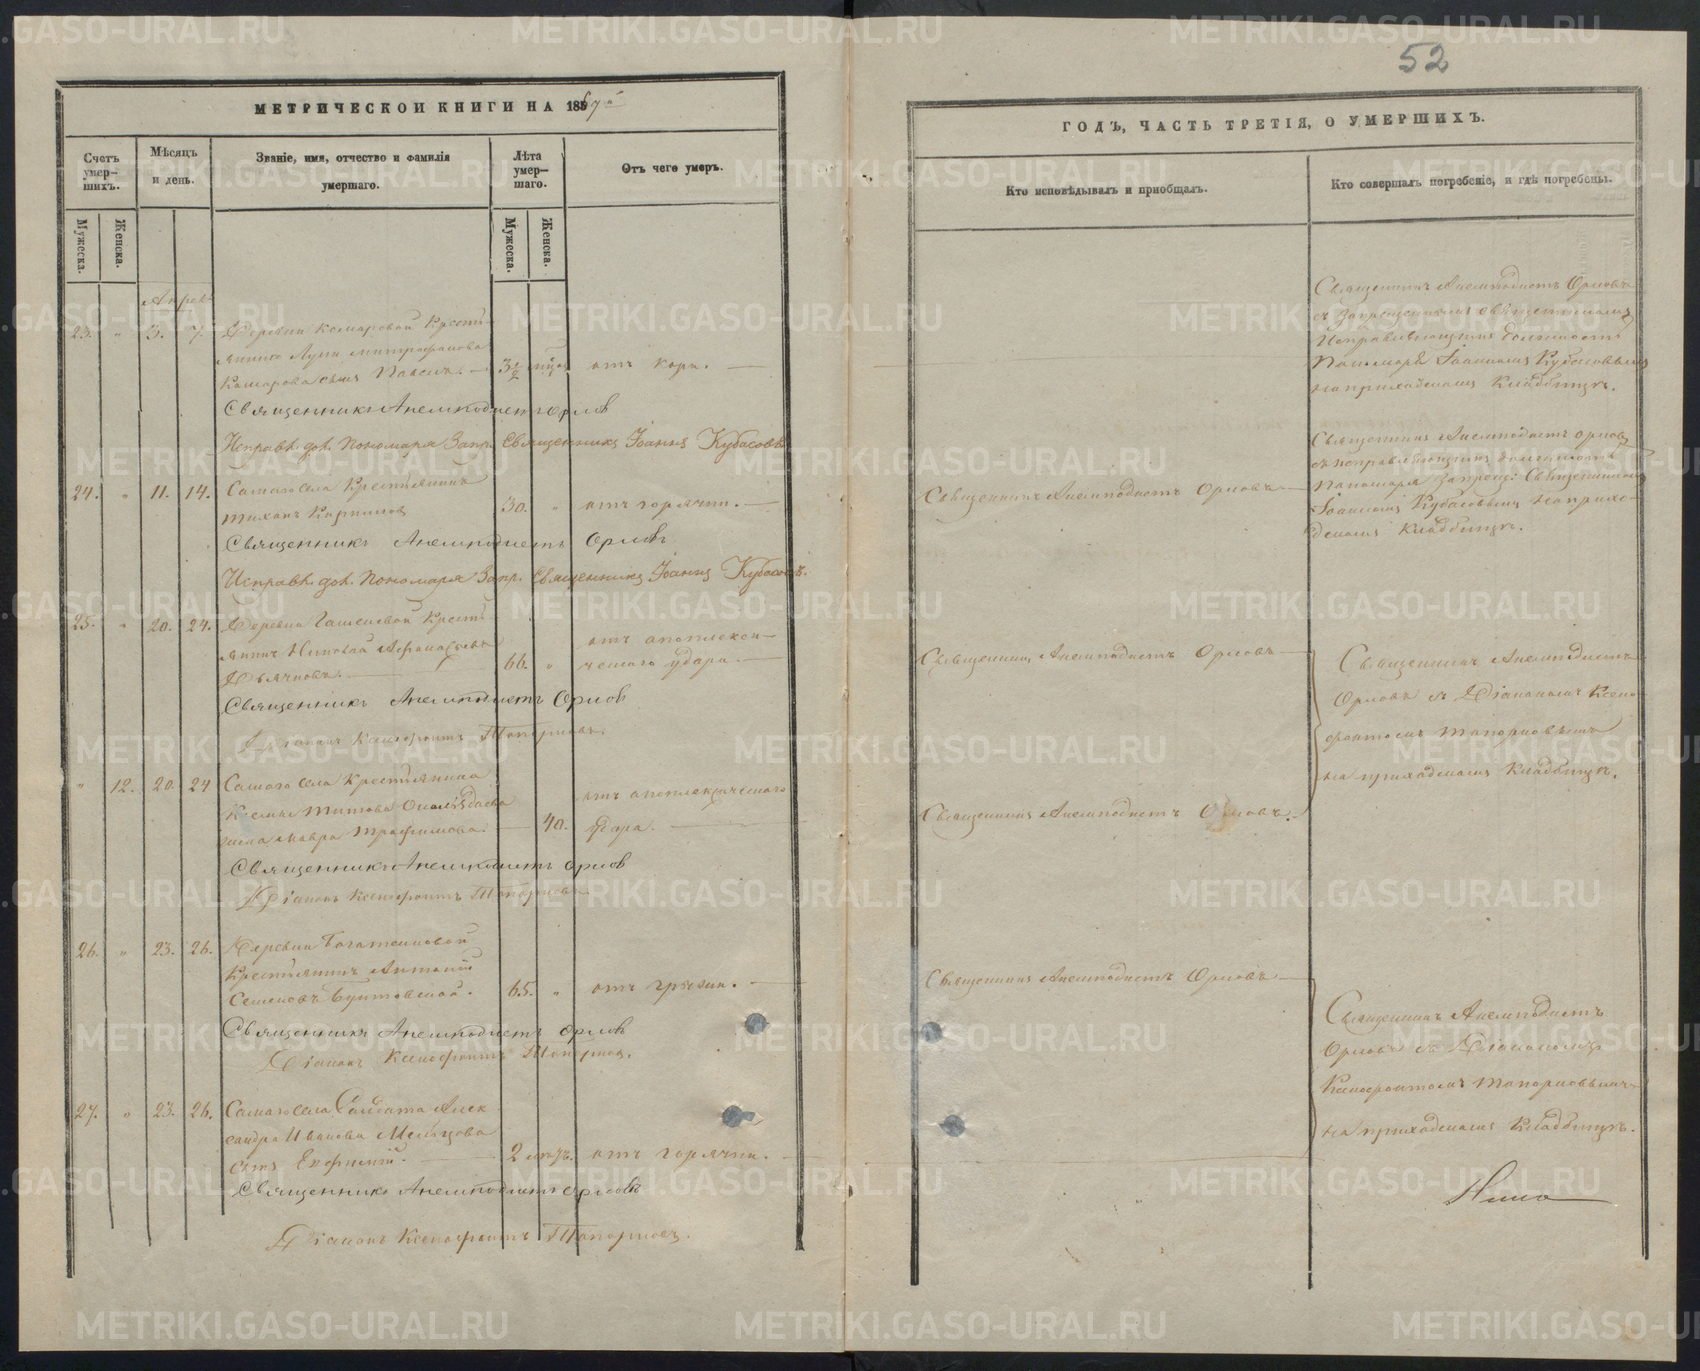 52
МЕТРИЧЕСКОЙ КНИГИ НА 1867й
Счетъ умер-
шихъ.
Мѣсяцъ
и день.
Званіе, имя, отчество и фамилія
умершаго.
Лѣта
умер-
шаго.
Отъ чего умеръ.
Мужеска.
Женска.
Мужеска.
Женска.
23. " 5. 7. Деревни Комаровой Крестья-
нина Луки Митрофанова
Комарова сынъ Павелъ. 3½ отъ кори.
Священникъ Анемподистъ Орловъ
Исправл. дол. Пономаря Запр. Священникъ Іоаннъ Кубасовъ
24. " 11. 14. Самаго села Крестьянинъ
Тиханъ Карпиловъ 30. " отъ горячки.
Священникъ Анемподистъ Орловъ
Исправл. дол. Пономаря Запр. Священникъ Іоаннъ Кубасовъ.
25. " 20. 24. Деревни Крестья-
янинъ Афанасьевъ 66. " отъ апоплекси-
Дьячковъ. ческаго удара.
Священникъ Анемподистъ Орловъ
Діаконъ Ксенофонтъ Топорковъ.
" 12. 20. 24 Самаго села Крестьянина
Титова
жена Мавра Трофимова. 40. отъ апоплексическаго
удара.
Священникъ Анемподистъ Орловъ
Діаконъ Ксенофонтъ Топорковъ
26. " 23. 26. Деревни
Крестьянинъ Антоній
Семеновъ 65. " отъ грыжи.
Священникъ Анемподистъ Орловъ
Діаконъ Ксенофонтъ Топорковъ.
27. " 23. 26. Самаго села Солдата Алек-
сандра Иванова
сынъ 2 отъ горячки.
Священникъ Анемподистъ Орловъ
Діаконъ Ксенофонтъ Топорковъ.
ГОДЪ, ЧАСТЬ ТРЕТІЯ, О УМЕРШИХЪ.
Кто исповѣдывалъ и приобщалъ.
Кто совершалъ погребеніе, и гдѣ погребены.
Священникъ Анемподистъ Орловъ
съ запрещеннымъ священникомъ
исправляющимъ должность
Пономаря Іоанномъ Кубасовымъ
на приходскомъ Кладбищѣ.
Священникъ Анемподистъ Орловъ
Священникъ Анемподистъ Орловъ
съ исправляющимъ должность
Пономаря запрещ: Священникомъ
Іоанномъ Кубасовымъ на прихо-
дскомъ Кладбищѣ.
Священникъ Анемподистъ Орловъ
Священникъ Анемподистъ
Орловъ съ Діакономъ Ксено-
фонтомъ Топорковымъ
на приходскомъ Кладбищѣ.
Священникъ Анемподистъ Орловъ.
Священникъ Анемподистъ Орловъ
Священникъ Анемподистъ
Орловъ съ Діакономъ
Ксенофонтомъ Топорковымъ
на приходскомъ Кладбищѣ.
METRIKI.GASO-URAL.RU